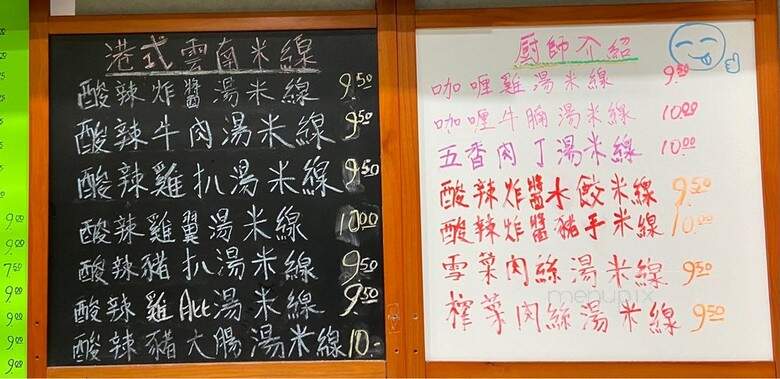 港式雲南米線
酸辣炸醬湯米線 9.50
酸辣牛肉湯米線 9.50
酸辣雞扒湯米線 9.50
酸辣雞翼湯米線 10.00
酸辣豬扒湯米線 9.50
酸辣雞 湯米線 9.50
酸辣豬大腸湯米線 10.-
廚師介紹
咖喱雞湯米線 9.50
咖喱牛腩湯米線 10.00
五香肉丁湯米線 10.00
酸辣炸醬水餃米線 9.50
酸辣炸醬豬手米線 10.00
雪菜肉絲湯米線 9.50
榨菜肉絲湯米線 9.50
menupix
9.00
9.00
7.50
9.00
9.00
9.00